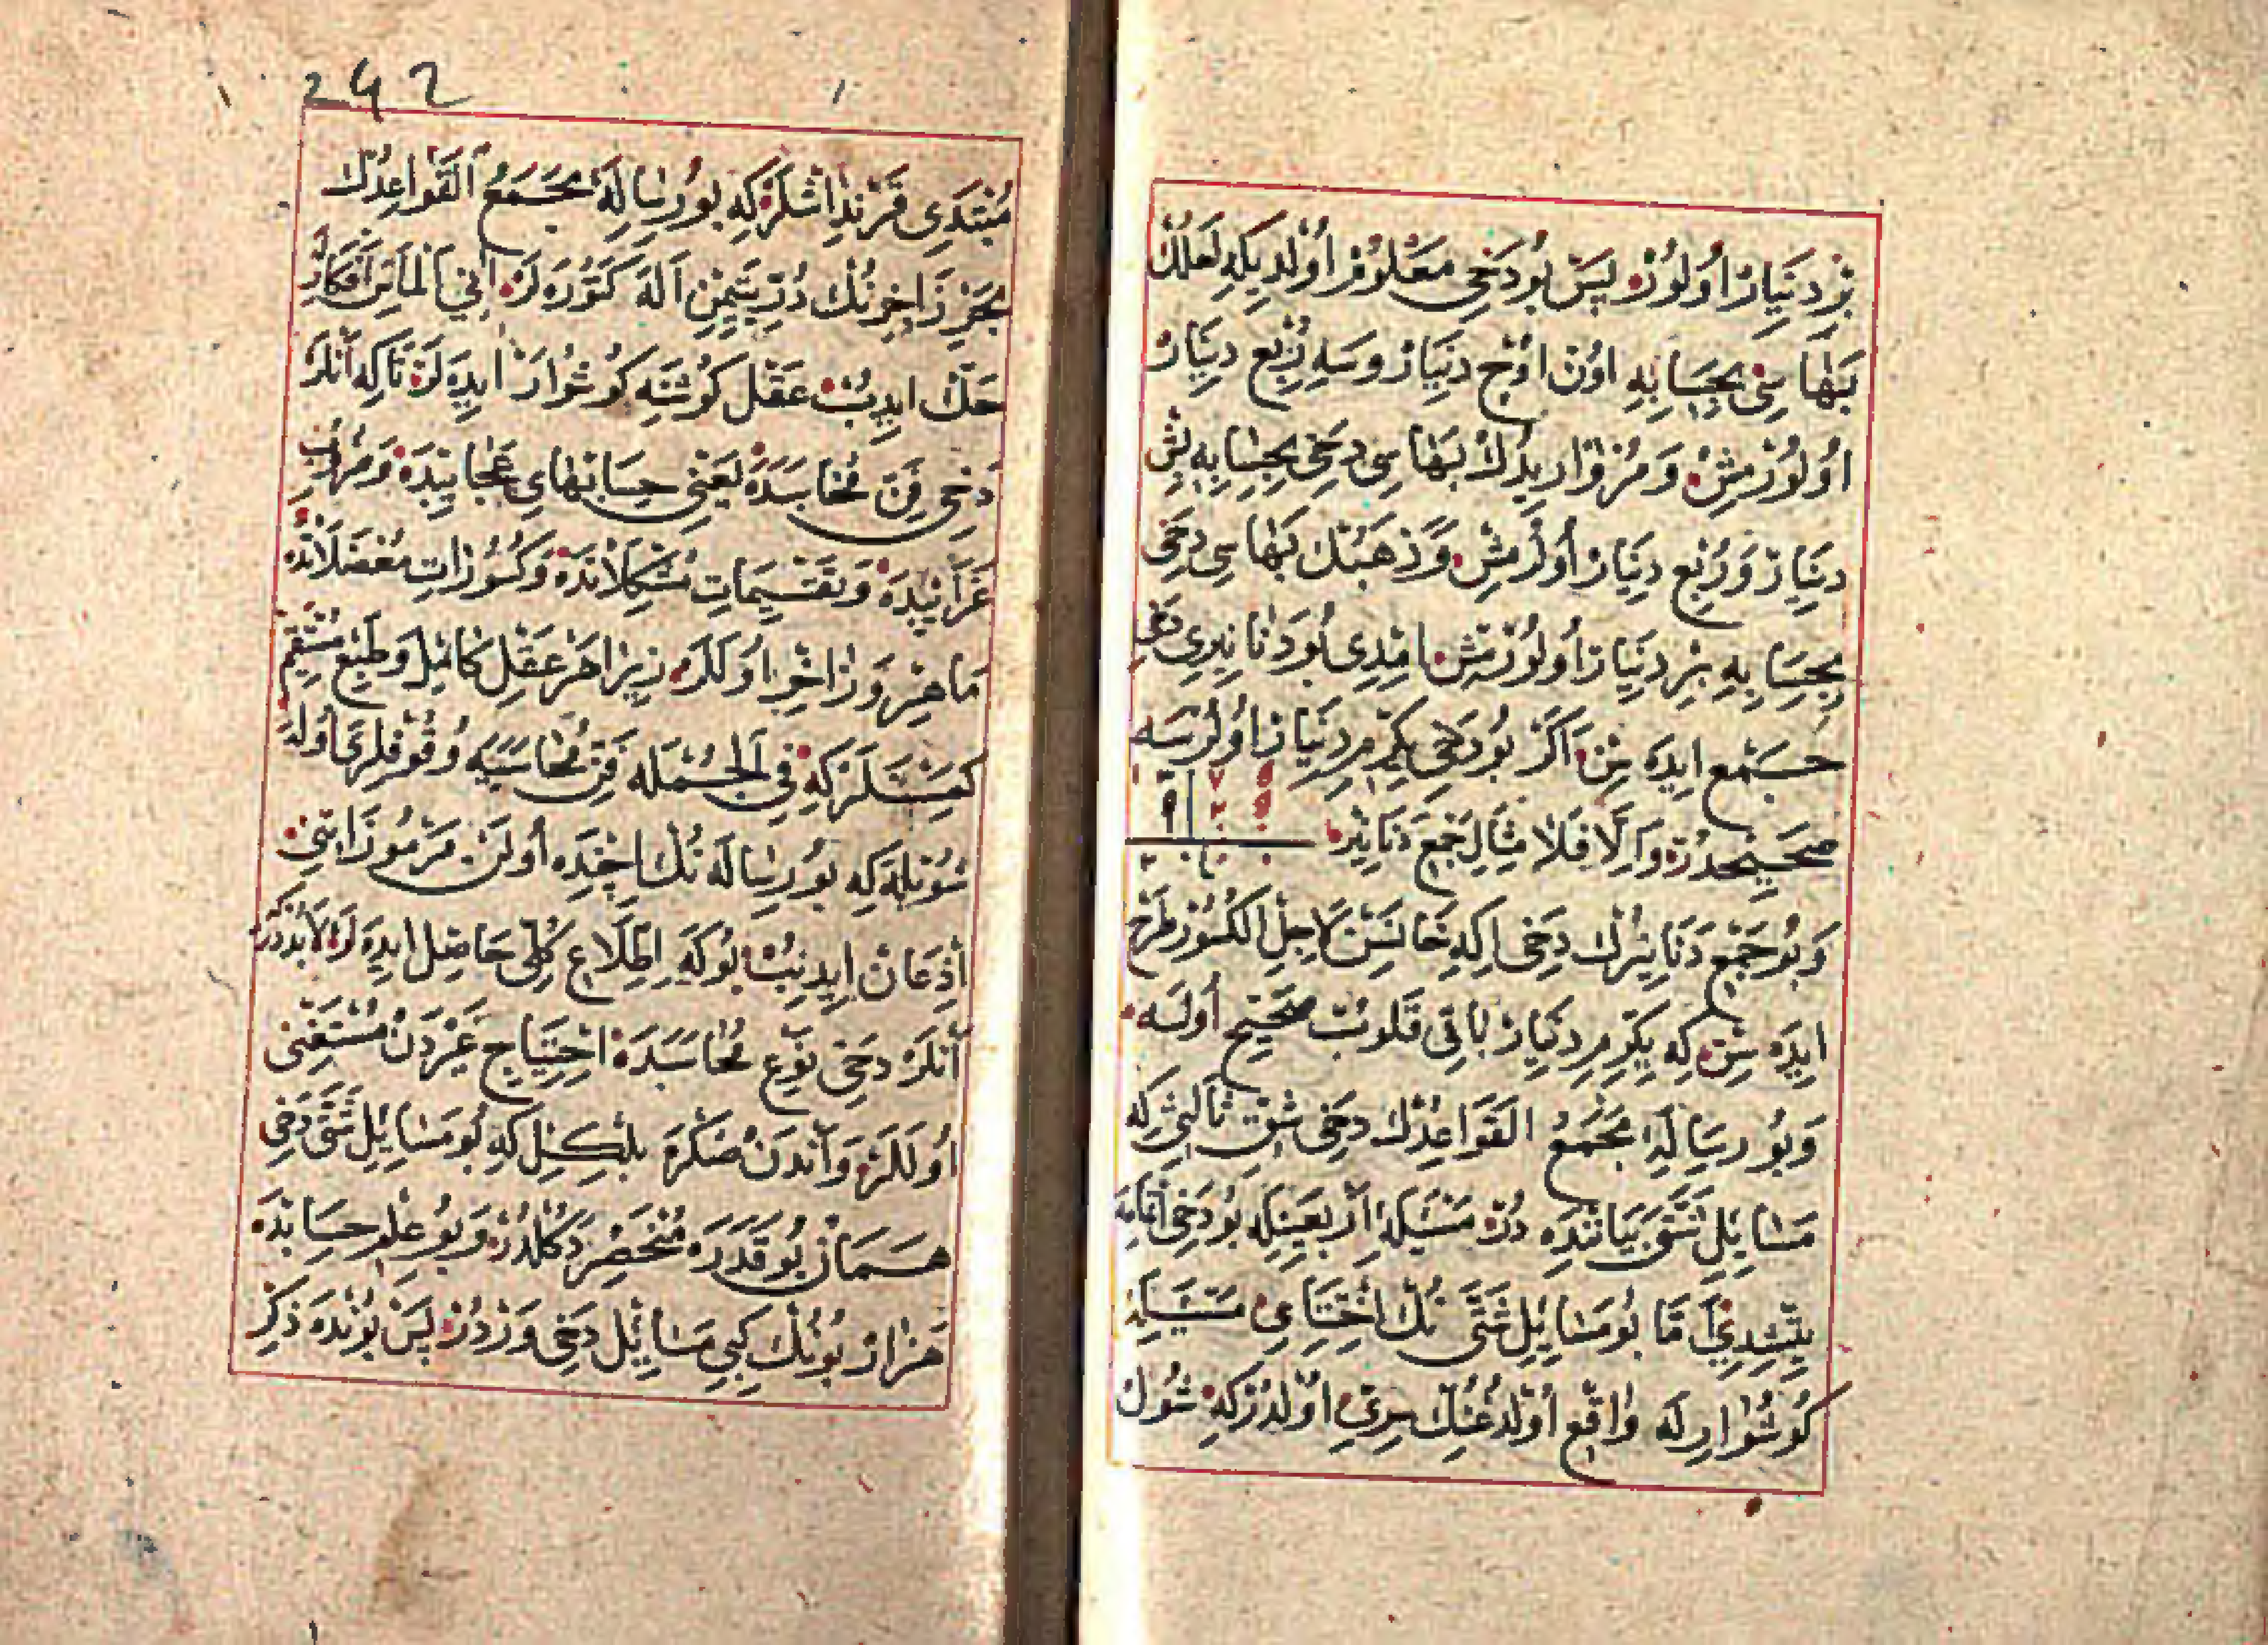 بر دینار اولور پس بو دخی معلوم اولدیکه لعلك
بهاسی بحسابه اون اوچ دینار و سه ربع دینار
اولورمش و مرواریدك بهاسی دخی بحسابه بش
دینار و ربع دینار اولرمش و ذهبنك بهاسی دخی
بحسابه بر دینار اولورمش امدی بو دنانیری دخی
جمع ایده سن اكر بو دخی یكرمی دینار اولورسه
صحیحدر والا فلا مثال جمع دنانیر
و بو جمع دنانیرك دخی اكه خانسن لاجل الكسور طرح
ایده سن كه یكرمی دینار باقی قلوب صحیح اولسه
و بو رساله مجمع القواعدك دخی شق ثالثی كه
مسایل شتی بیاننده در مسئله اربعینله بو دخی اتمامه
یتشدی اما بو مسایل شتی نك اختتامی مسئله
كوشواریله واقع اولدغنك سری اولدركه شول
242
مبتدی فرنداشلر كه بو رساله مجمع القواعدك
بحر زاخرنك در یتیمن اله كتوره لر انی الماس افكار
حك ایدیب عقل كوشنه كوشوار ایده لر تا كه انلر
دخی فن محاسبه ده یعنی حسابهای عجایبده و مراتب
غرایبده و تقسیمات مشكلاتده و كسورات معضلاتده
ماهر و زاخر اولالر زیرا هر عقل كامل و طبع مستقیم
كمسنلر كه فی الجمله فن محاسبه وقوفلری اوله
شویله كه بو رساله نك ایچنده اولن مرموزاتنی
اذعان ایدینب بوكه اطلاع كلی حاصل ایده لر لابددر
انلر دخی نوع محاسبه ده احتیاج غیردن مستغنی
اولالر و اندن صكره بلكل كه بو مسایل شتی دخی
همان بو قدره منحصر دكلدر و بو علم حسابده
هزار بونك كبی مسایل دخی وردر پس بونده ذكر